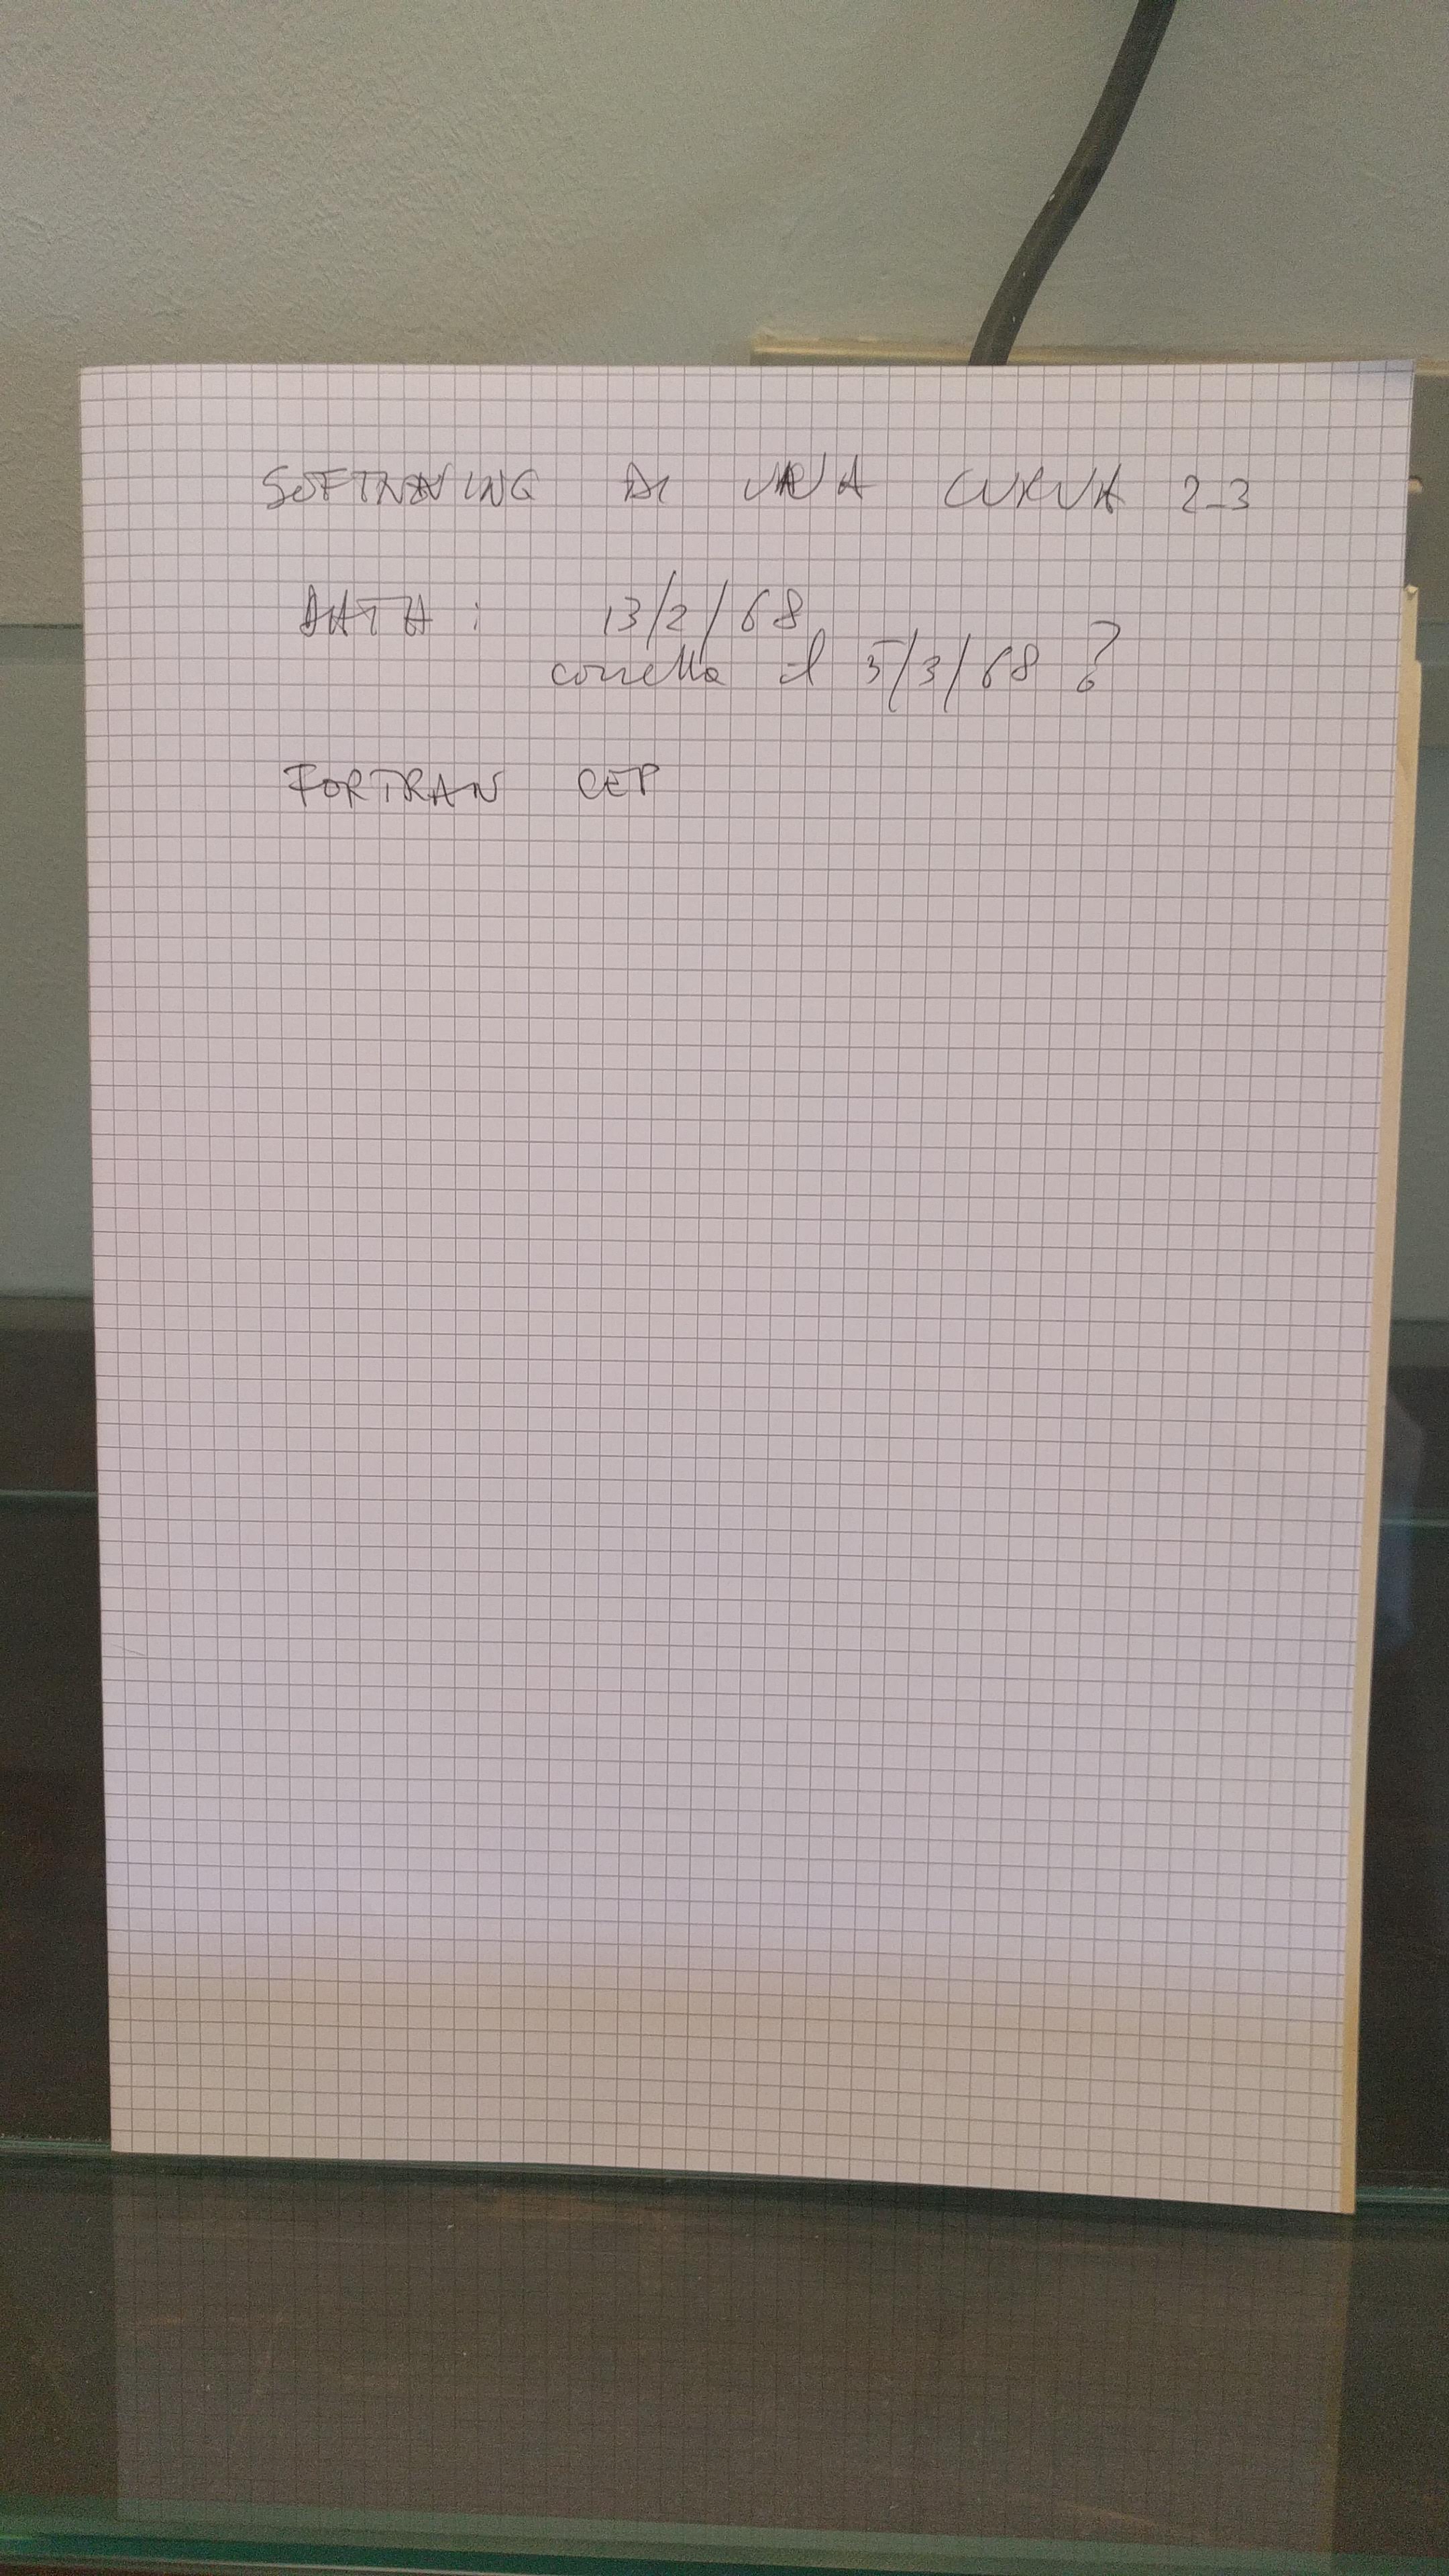 DI UNA CURVA 2-3
DATA : 13/2/68
corretta il 5/3/68 ?
FORTRAN CEP